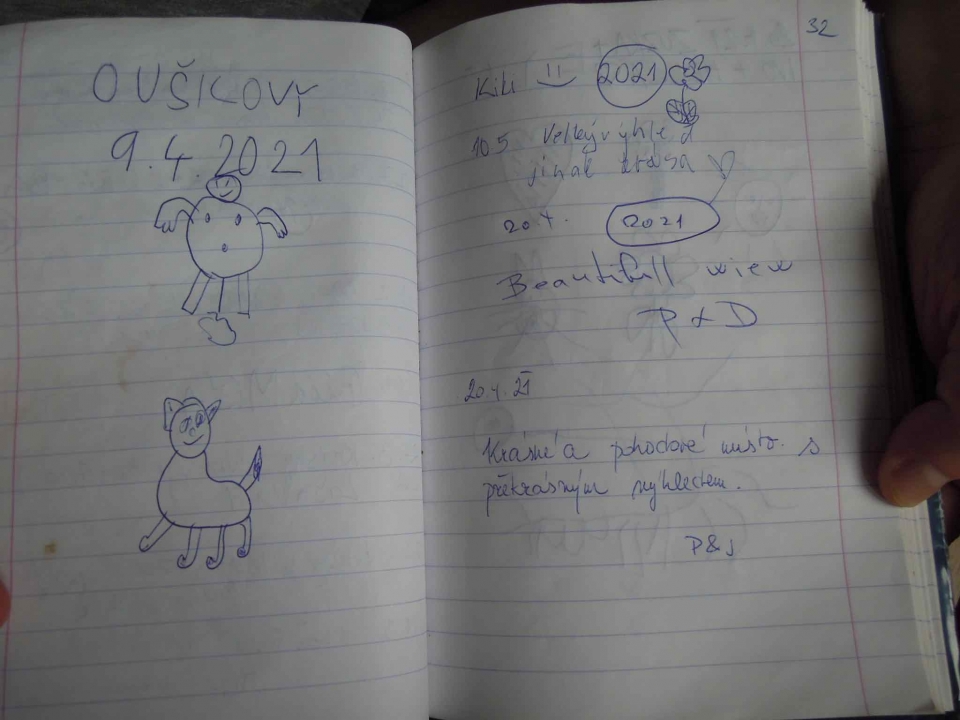 OUŠKOVY
9.4.2021
32
Kiki 2021
10.5 Velký výhled
jinak krása
2021
Beautifull wiew
P & D
Krásné a pohodové místo s
překrásným výhledem.
P&J